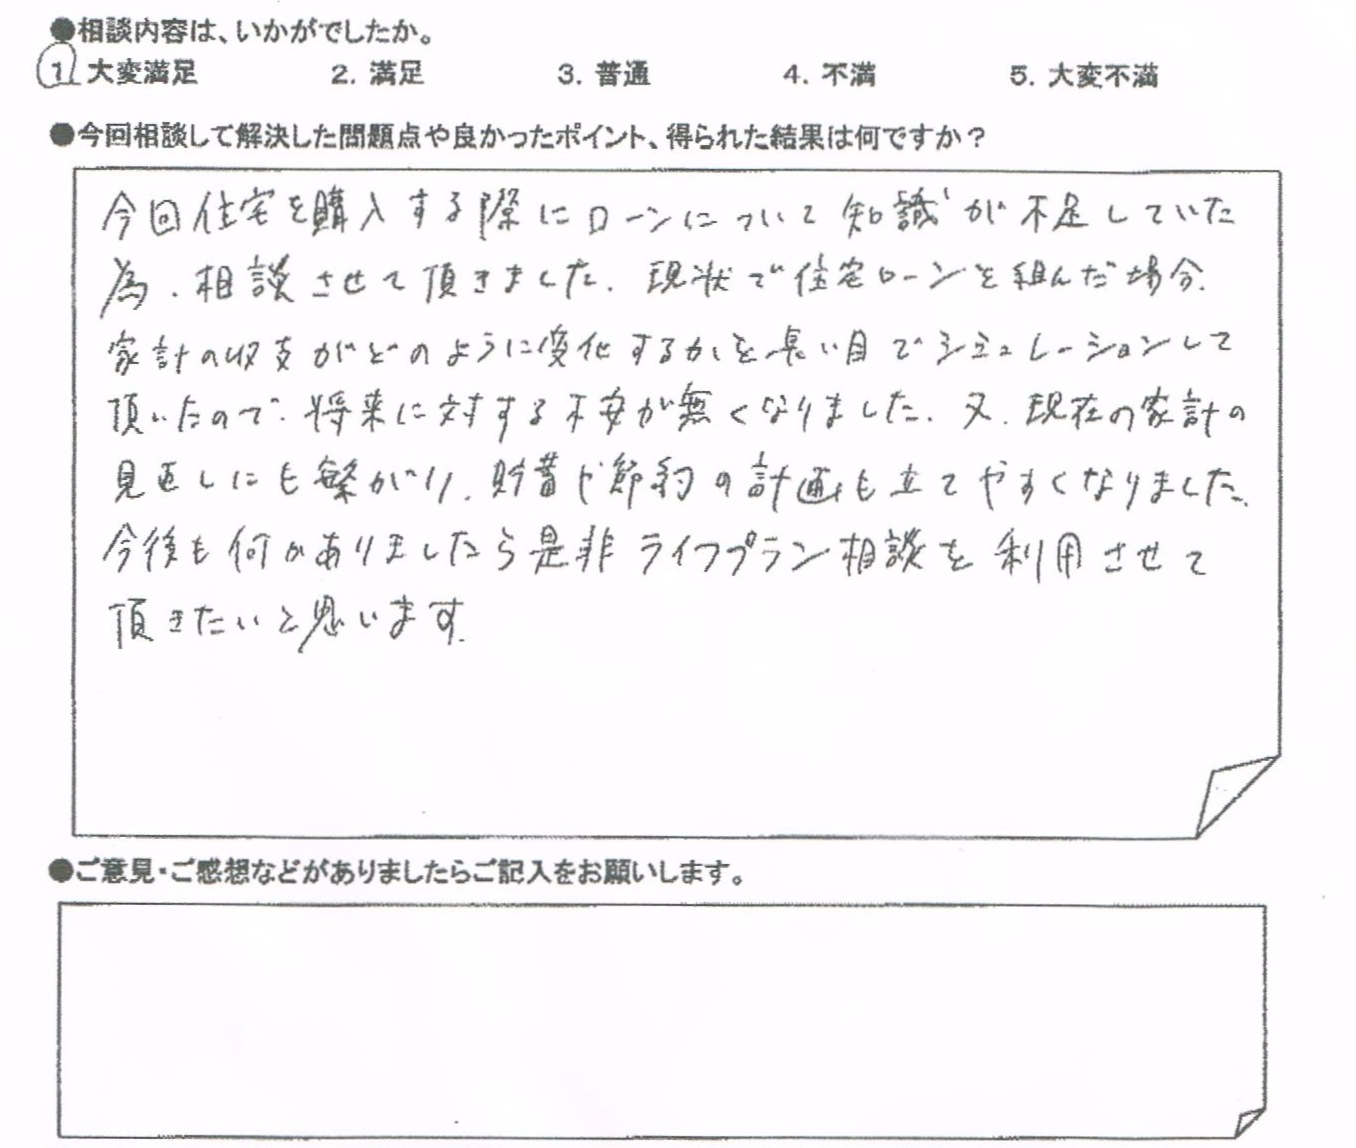 ●相談内容は、いかがでしたか。
1. 大変満足 2. 満足 3. 普通 4. 不満 5. 大変不満
●今回相談して解決した問題点や良かったポイント、得られた結果は何ですか？
今回住宅を購入する際にローンについて知識が不足していた
為、相談させて頂きました。現状で住宅ローンを組んだ場合、
家計の収支がどのように変化するかを長い目でシミュレーションして
頂いたので、将来に対する不安が無くなりました。又、現在の家計の
見直しにも繋がり、貯蓄や節約の計画も立てやすくなりました。
今後も何かありましたら是非ライフプラン相談を利用させて
頂きたいと思います。
●ご意見・ご感想などがありましたらご記入をお願いします。